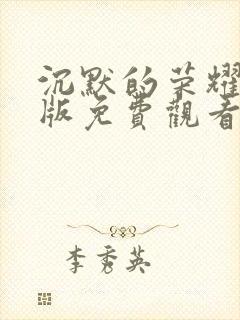 沉默的荣耀
版免費觀看
李秀英